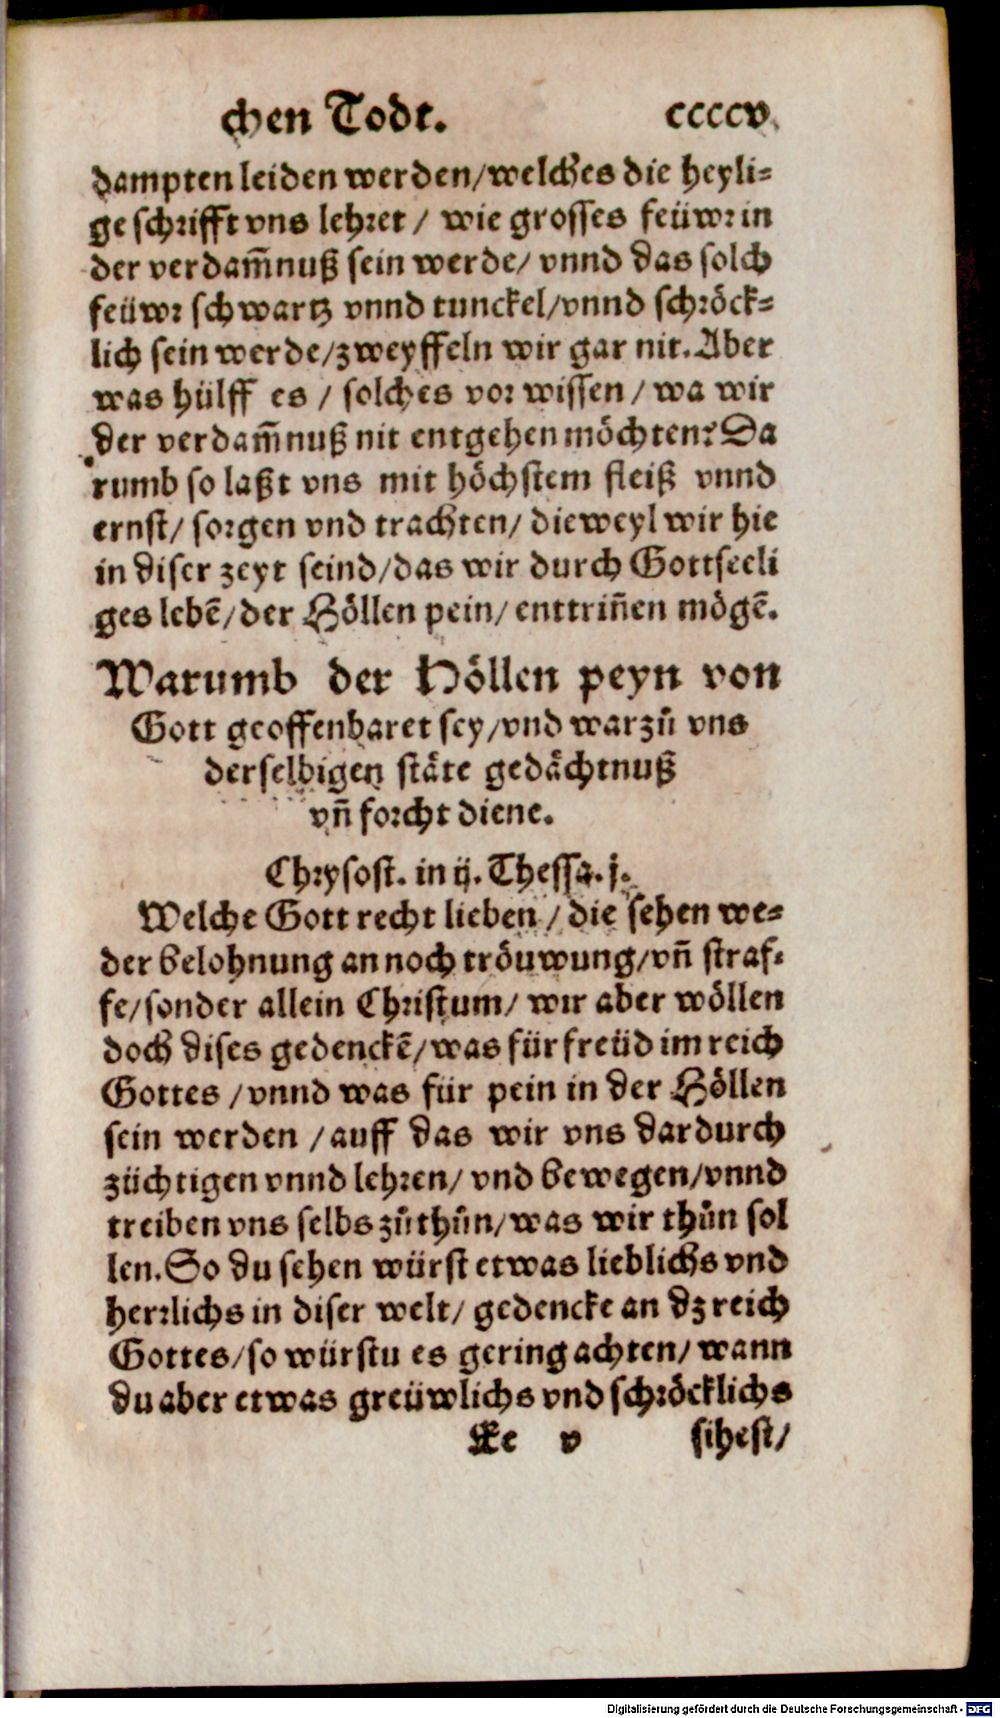 chen Todt. ccccv.
dampten leiden werden/welches die heyli-
ge schrifft vns lehret / wie grosses feüwr in
der verdam̄nuß sein werde/ vnnd das solch
feüwr schwartz vnnd tunckel/vnnd schröck-
lich sein werde/zweyffeln wir gar nit. Aber
was hülff es / solches vor wissen / wa wir
der verdam̄nuß nit entgehen möchten? Da
rumb so laßt vns mit höchstem fleiß vnnd
ernst/ sorgen vnd trachten/ dieweyl wir hie
in diser zeyt seind/das wir durch Gottseeli
ges lebē/der Höllen pein/ enttrin̄en mögē.
Warumb der Höllen peyn von
Gott geoffenbaret sey/vnd warzů vns
derselbigen stäte gedächtnuß
vn̄ forcht diene.
Chrysost. in ij. Thessa. j.
Welche Gott recht lieben / die sehen we-
der belohnung an noch tröuwung/vn̄ straf-
fe/sonder allein Christum/ wir aber wöllen
doch dises gedenckē/was für freüd im reich
Gottes /vnnd was für pein in der Höllen
sein werden /auff das wir vns dardurch
züchtigen vnnd lehren/ vnd bewegen/vnnd
treiben vns selbs zůthůn/was wir thůn sol
len. So du sehen würst etwas lieblichs vnd
herrlichs in diser welt/ gedencke an dz reich
Gottes/so würstu es gering achten/ wann
du aber etwas greüwlichs vnd schröcklichs
Ee v sihest/
Digitalisierung gefördert durch die Deutsche Forschungsgemeinschaft - DFG